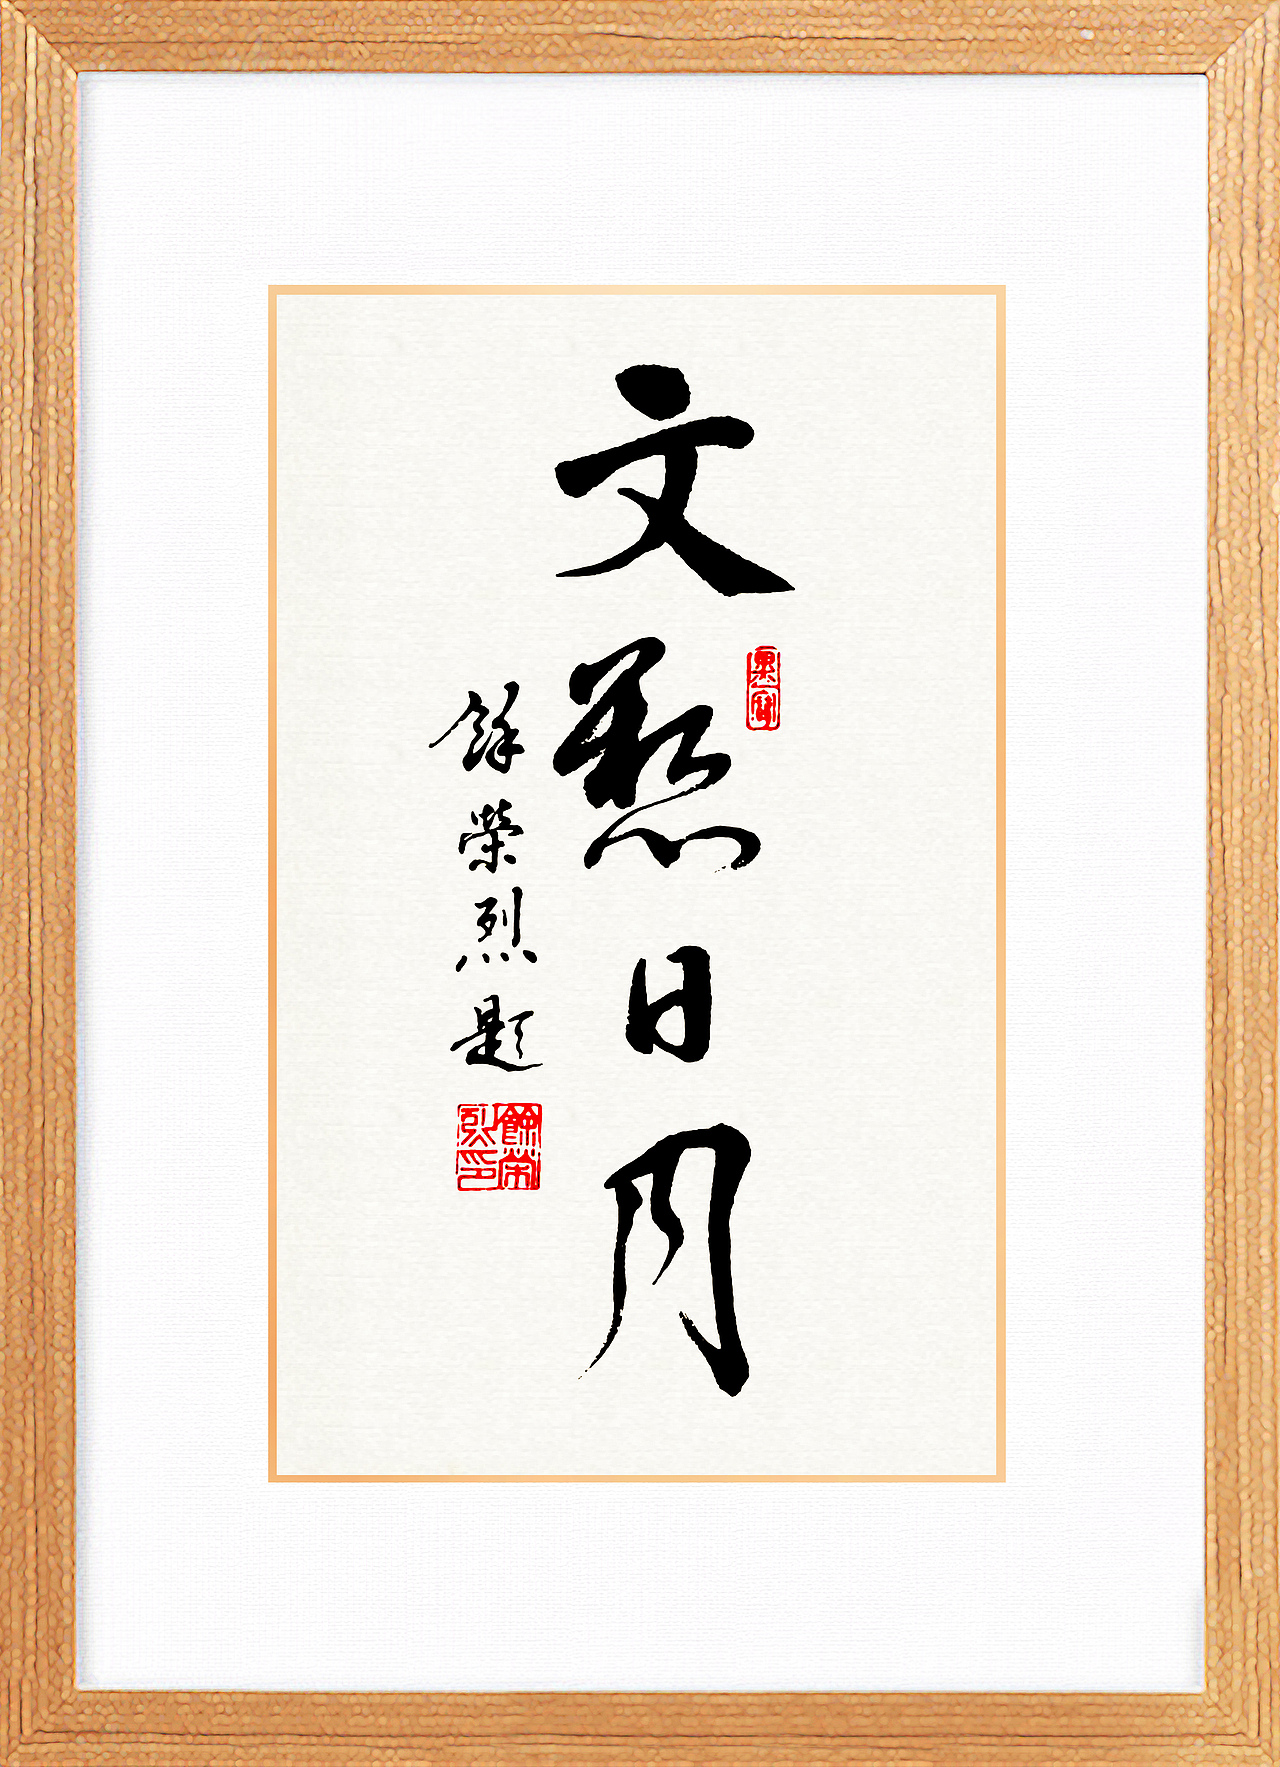 文懸日月
餘榮烈題
餘榮烈印